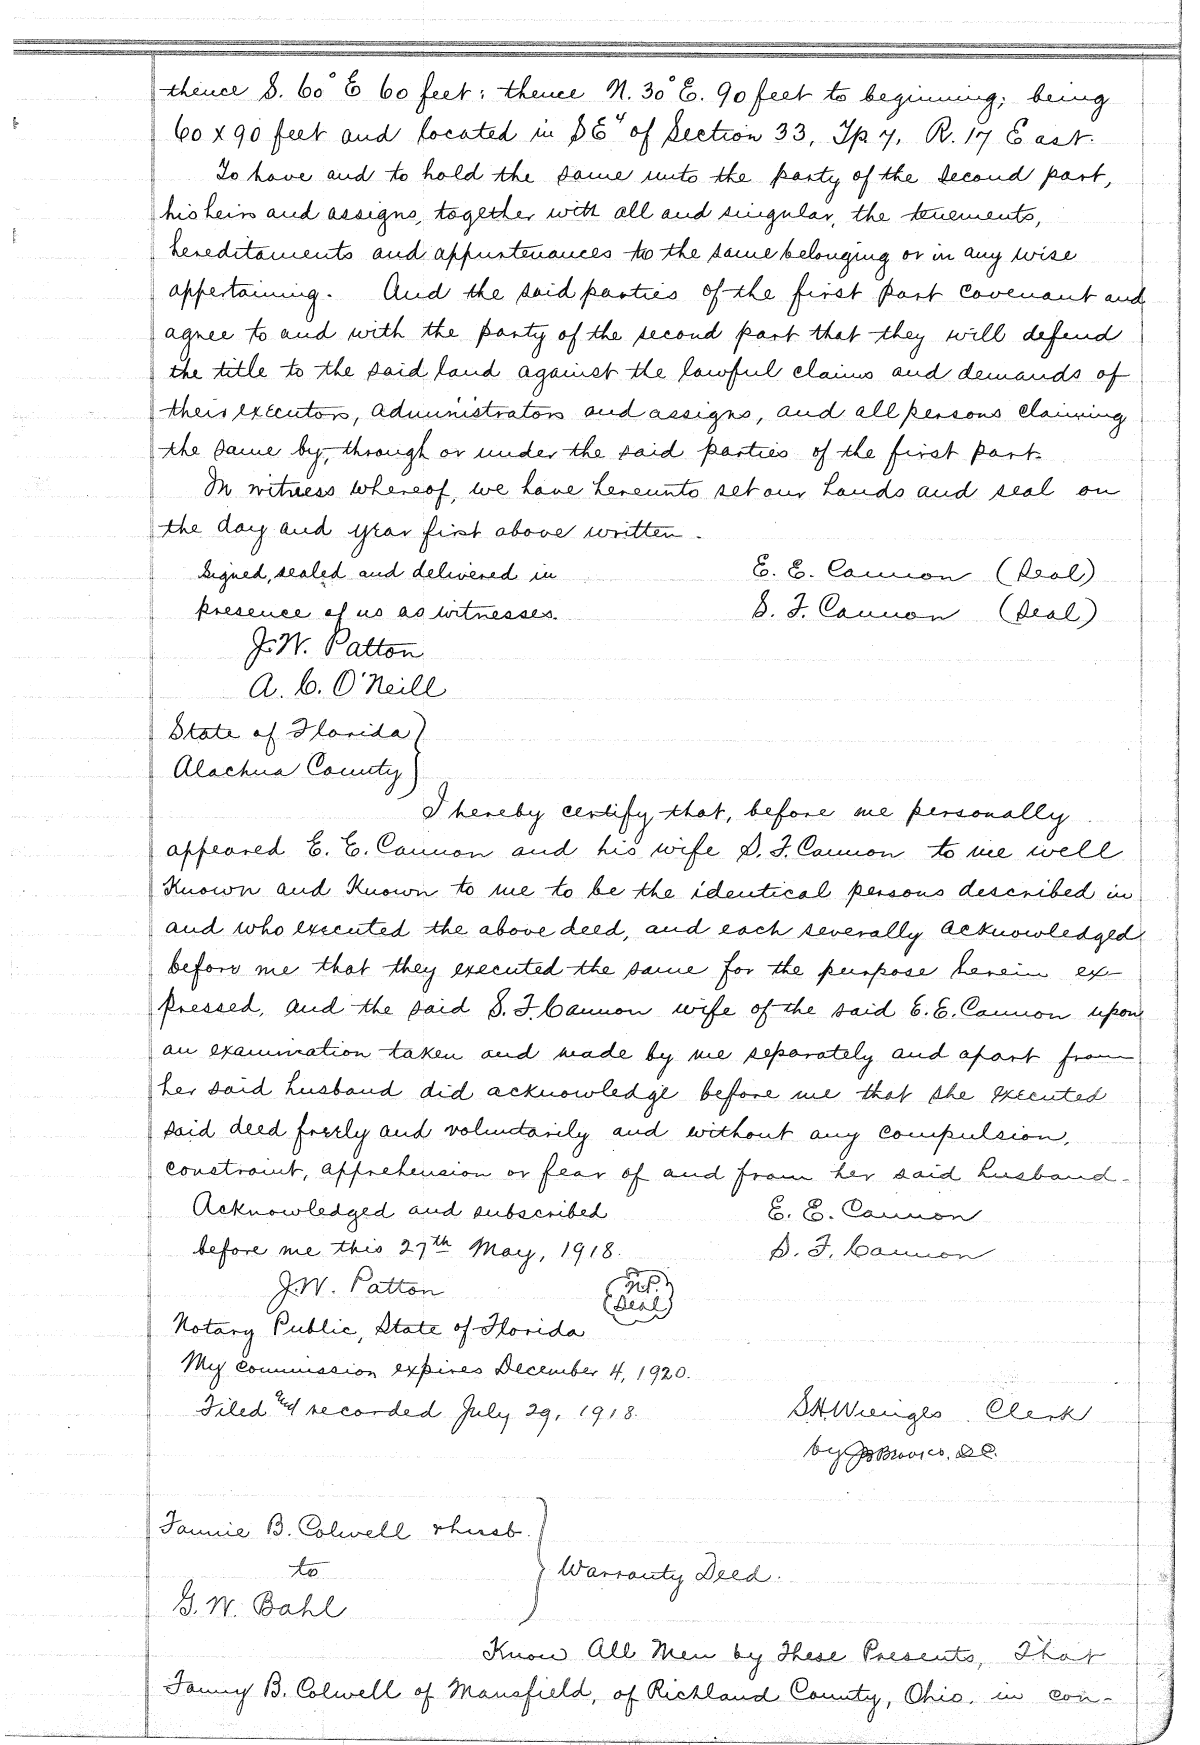 thence S. 60° E 60 feet; thence N. 30° E. 90 feet to beginning; being
60 x 90 feet and located in SE4 of Section 33, Tp 7, R. 17 East.
To have and to hold the same unto the party of the second part,
his heirs and assigns, together with all and singular, the tenements,
hereditaments and appurtenances to the same belonging or in any wise
appertaining. And the said parties of the first part covenant and
agree to and with the party of the second part that they will defend
the title to the said land against the lawful claims and demands of
their executors, administrators and assigns, and all persons claiming
the same by, through or under the said parties of the first part.
In witness whereof, we have hereunto set our hands and seal on
the day and year first above written.
Signed, sealed and delivered in E. E. Cannon (Seal)
presence of us as witnesses. S. F. Cannon (Seal)
J. W. Patton
A. C. O'Neill
State of Florida
Alachua County
I hereby certify that, before me personally
appeared E. E. Cannon and his wife S. F. Cannon to me well
known and known to me to be the identical persons described in
and who executed the above deed, and each severally acknowledged
before me that they executed the same for the purpose herein ex-
pressed, and the said S. F. Cannon wife of the said E. E. Cannon upon
an examination taken and made by me separately and apart from
her said husband did acknowledge before me that she executed
said deed freely and voluntarily and without any compulsion,
constraint, apprehension or fear of and from her said husband.
Acknowledged and subscribed E. E. Cannon
before me this 27th May, 1918. S. F. Cannon
J. W. Patton (N.P. Seal)
Notary Public, State of Florida
My commission expires December 4, 1920.
Filed and recorded July 29, 1918. S. H. Wienges Clerk
by D.C.
Fannie B. Colwell & husb.
to Warranty Deed.
G. W. Bahl
Know All Men by These Presents, That
Fanny B. Colwell of Mansfield, of Richland County, Ohio, in con-